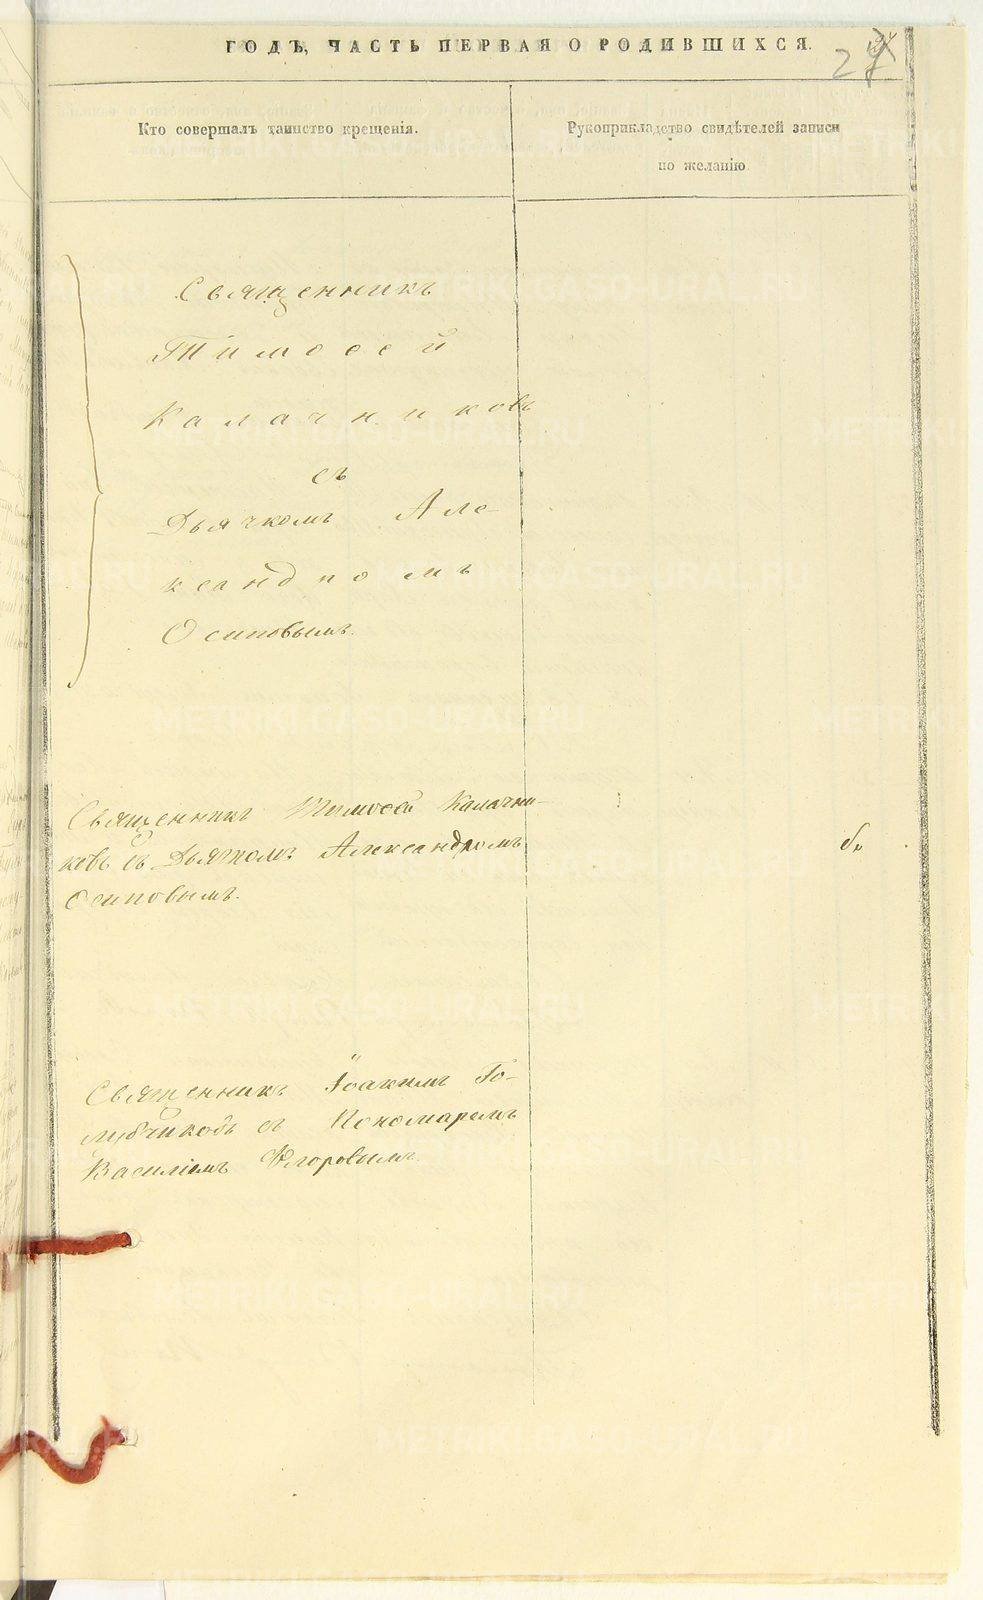 ГОДЪ, ЧАСТЬ ПЕРВАЯ О РОДИВШИХСЯ.
27
Кто совершалъ таинство крещенія.
Рукоприкладство свидѣтелей записи
по желанію
Священникъ
Тимоѳей
Калачниковъ
съ
Дьячкомъ Але-
ксандромъ
Осиповымъ.
Священникъ Тимоѳей Калачни-
ковъ съ Дьячкомъ Александромъ
Осиповымъ.
Священникъ Іоакимъ Го-
лубчиковъ съ Пономаремъ
Василіемъ Флоровымъ.
METRIKI.GASO-URAL.RU